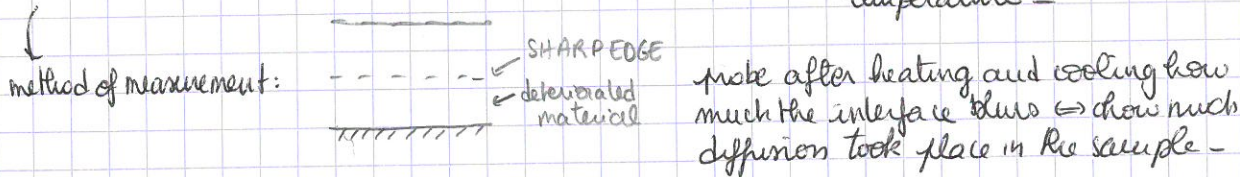 temperature -
method of measurement:
SHARP EDGE
deteriorated
material
probe after heating and cooling how
much the interface blurs ⇔ how much
diffusion took place in the sample -